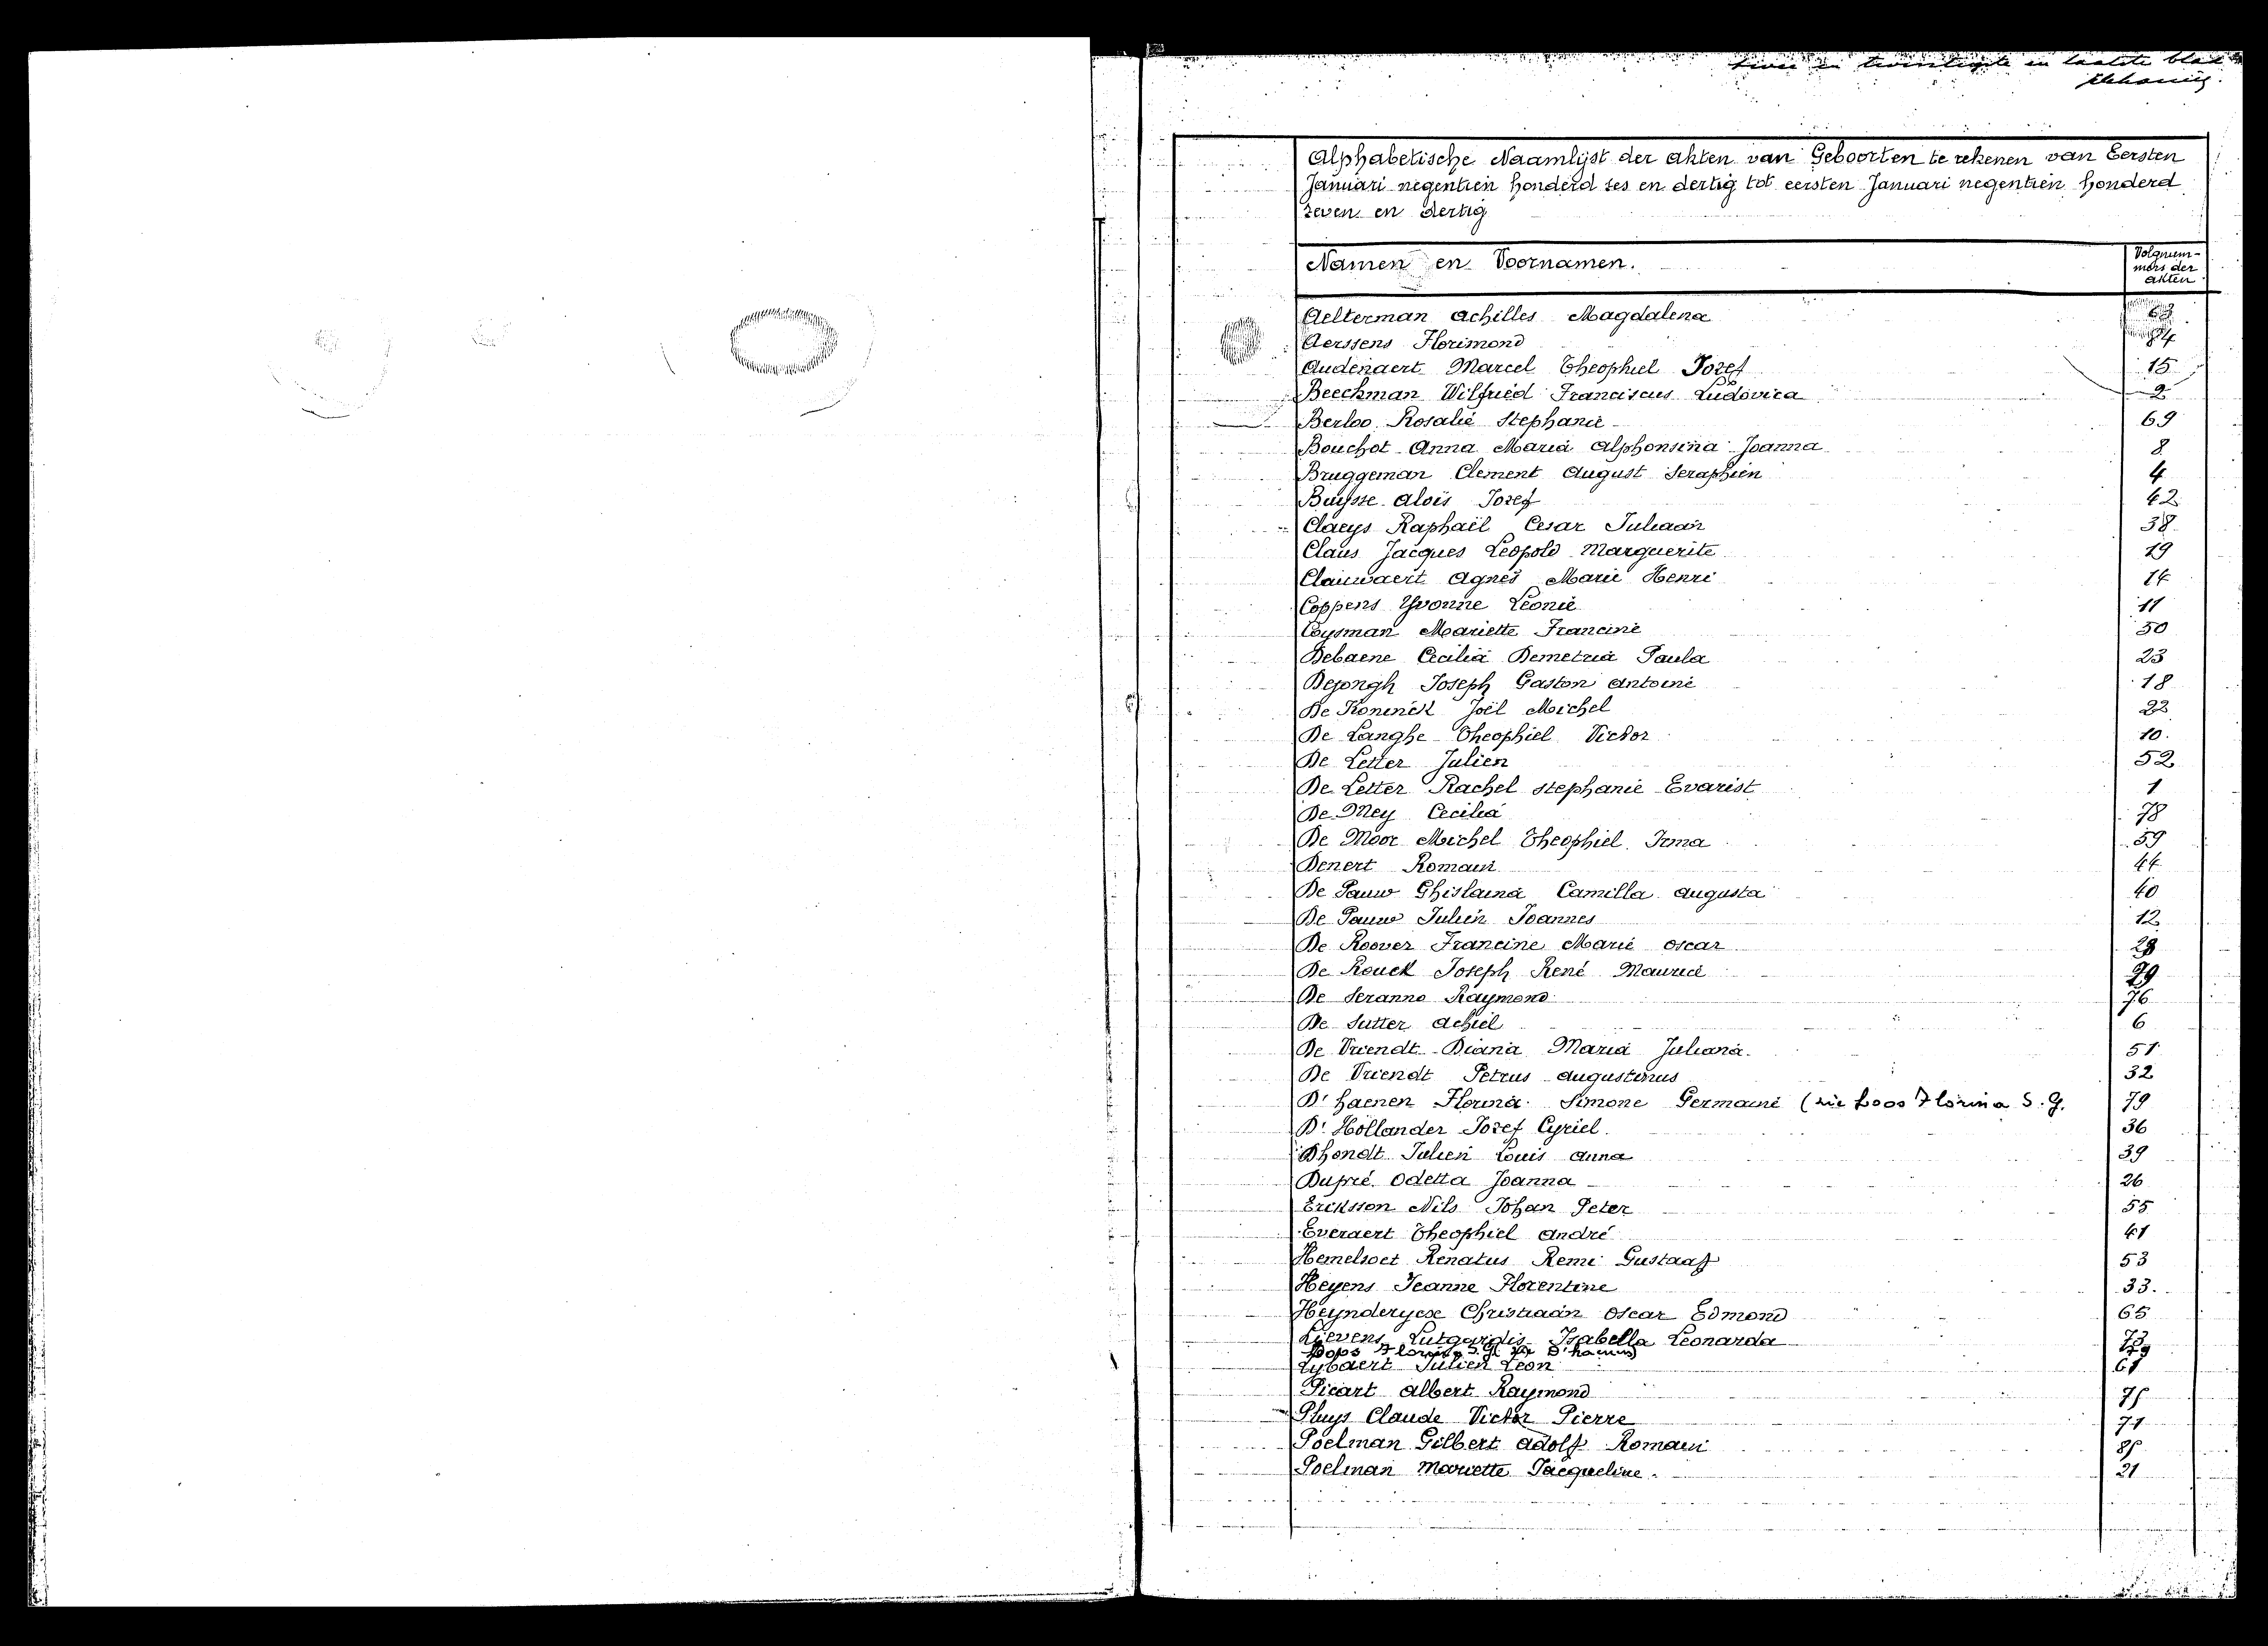 twee en twintigste en laatste blad
Alphabetische Naamlijst der akten van Geboorten te rekenen van Eersten
Januari negentien honderd zes en dertig tot eersten Januari negentien honderd
zeven en dertig
Namen en Voornamen. Volgnum-
mers der
akten
Aelterman Achilles Magdalena 63
Aerssens Florimond 84
Audenaert Marcel Theophiel Jozef 15
Beeckman Wilfried Franciscus Ludovica 2
Berloo Rosalie Stephanie 69
Bouchot Anna Maria Alphonsina Joanna 8
Bruggeman Clement August Seraphien 4
Buysse Aloïs Jozef 42
Claeys Raphaël Cesar Juliaan 38
Claus Jacques Leopold Marguerite 19
Clauwaert Agnes Marie Henri 14
Coppens Yvonne Leonie 11
Coysman Mariette Francine 50
Debaene Cecilia Demetria Paula 23
Dejongh Joseph Gaston Antoine 18
De Koninck Joël Michel 22
De Langhe Theophiel Victor 10.
De Letter Julien 52
De Letter Rachel Stephanie Evarist 1
De Mey Cecilia 78
De Moor Michel Theophiel Irma 59
Denert Romain 44
De Pauw Ghislaina Camilla Augusta 40
De Pauw Julien Joannes 12
De Roover Francine Marie Oscar 28
De Rouck Joseph René Maurice 29
De Seranno Raymond 76
De Sutter Achiel 6
De Vriendt Diana Maria Juliana. 51
De Vriendt Petrus Augustinus 32
D'haenen Florina Simone Germaine (zie Loos Florina S. G. 79
D'Hollander Jozef Cyriel. 36
Dhondt Julien Louis Anna 39
Dupré Odetta Joanna 26
Eriksson Nils Johan Peter 55
Everaert Theophiel André 41
Hemelsoet Renatus Remi Gustaaf 53
Heyens Jeanne Florentine 33.
Heynderycx Christiaan Oscar Edmond 65
Lievens Lutgardis Isabella Leonarda 73
Loos Florina S. G. zie D'haenen 79
Lybaert Julien Leon 61
Picart Albert Raymond 75
Pluys Claude Victor Pierre 71
Poelman Gilbert Adolf Romain 85
Poelman Mariette Jacqueline. 21